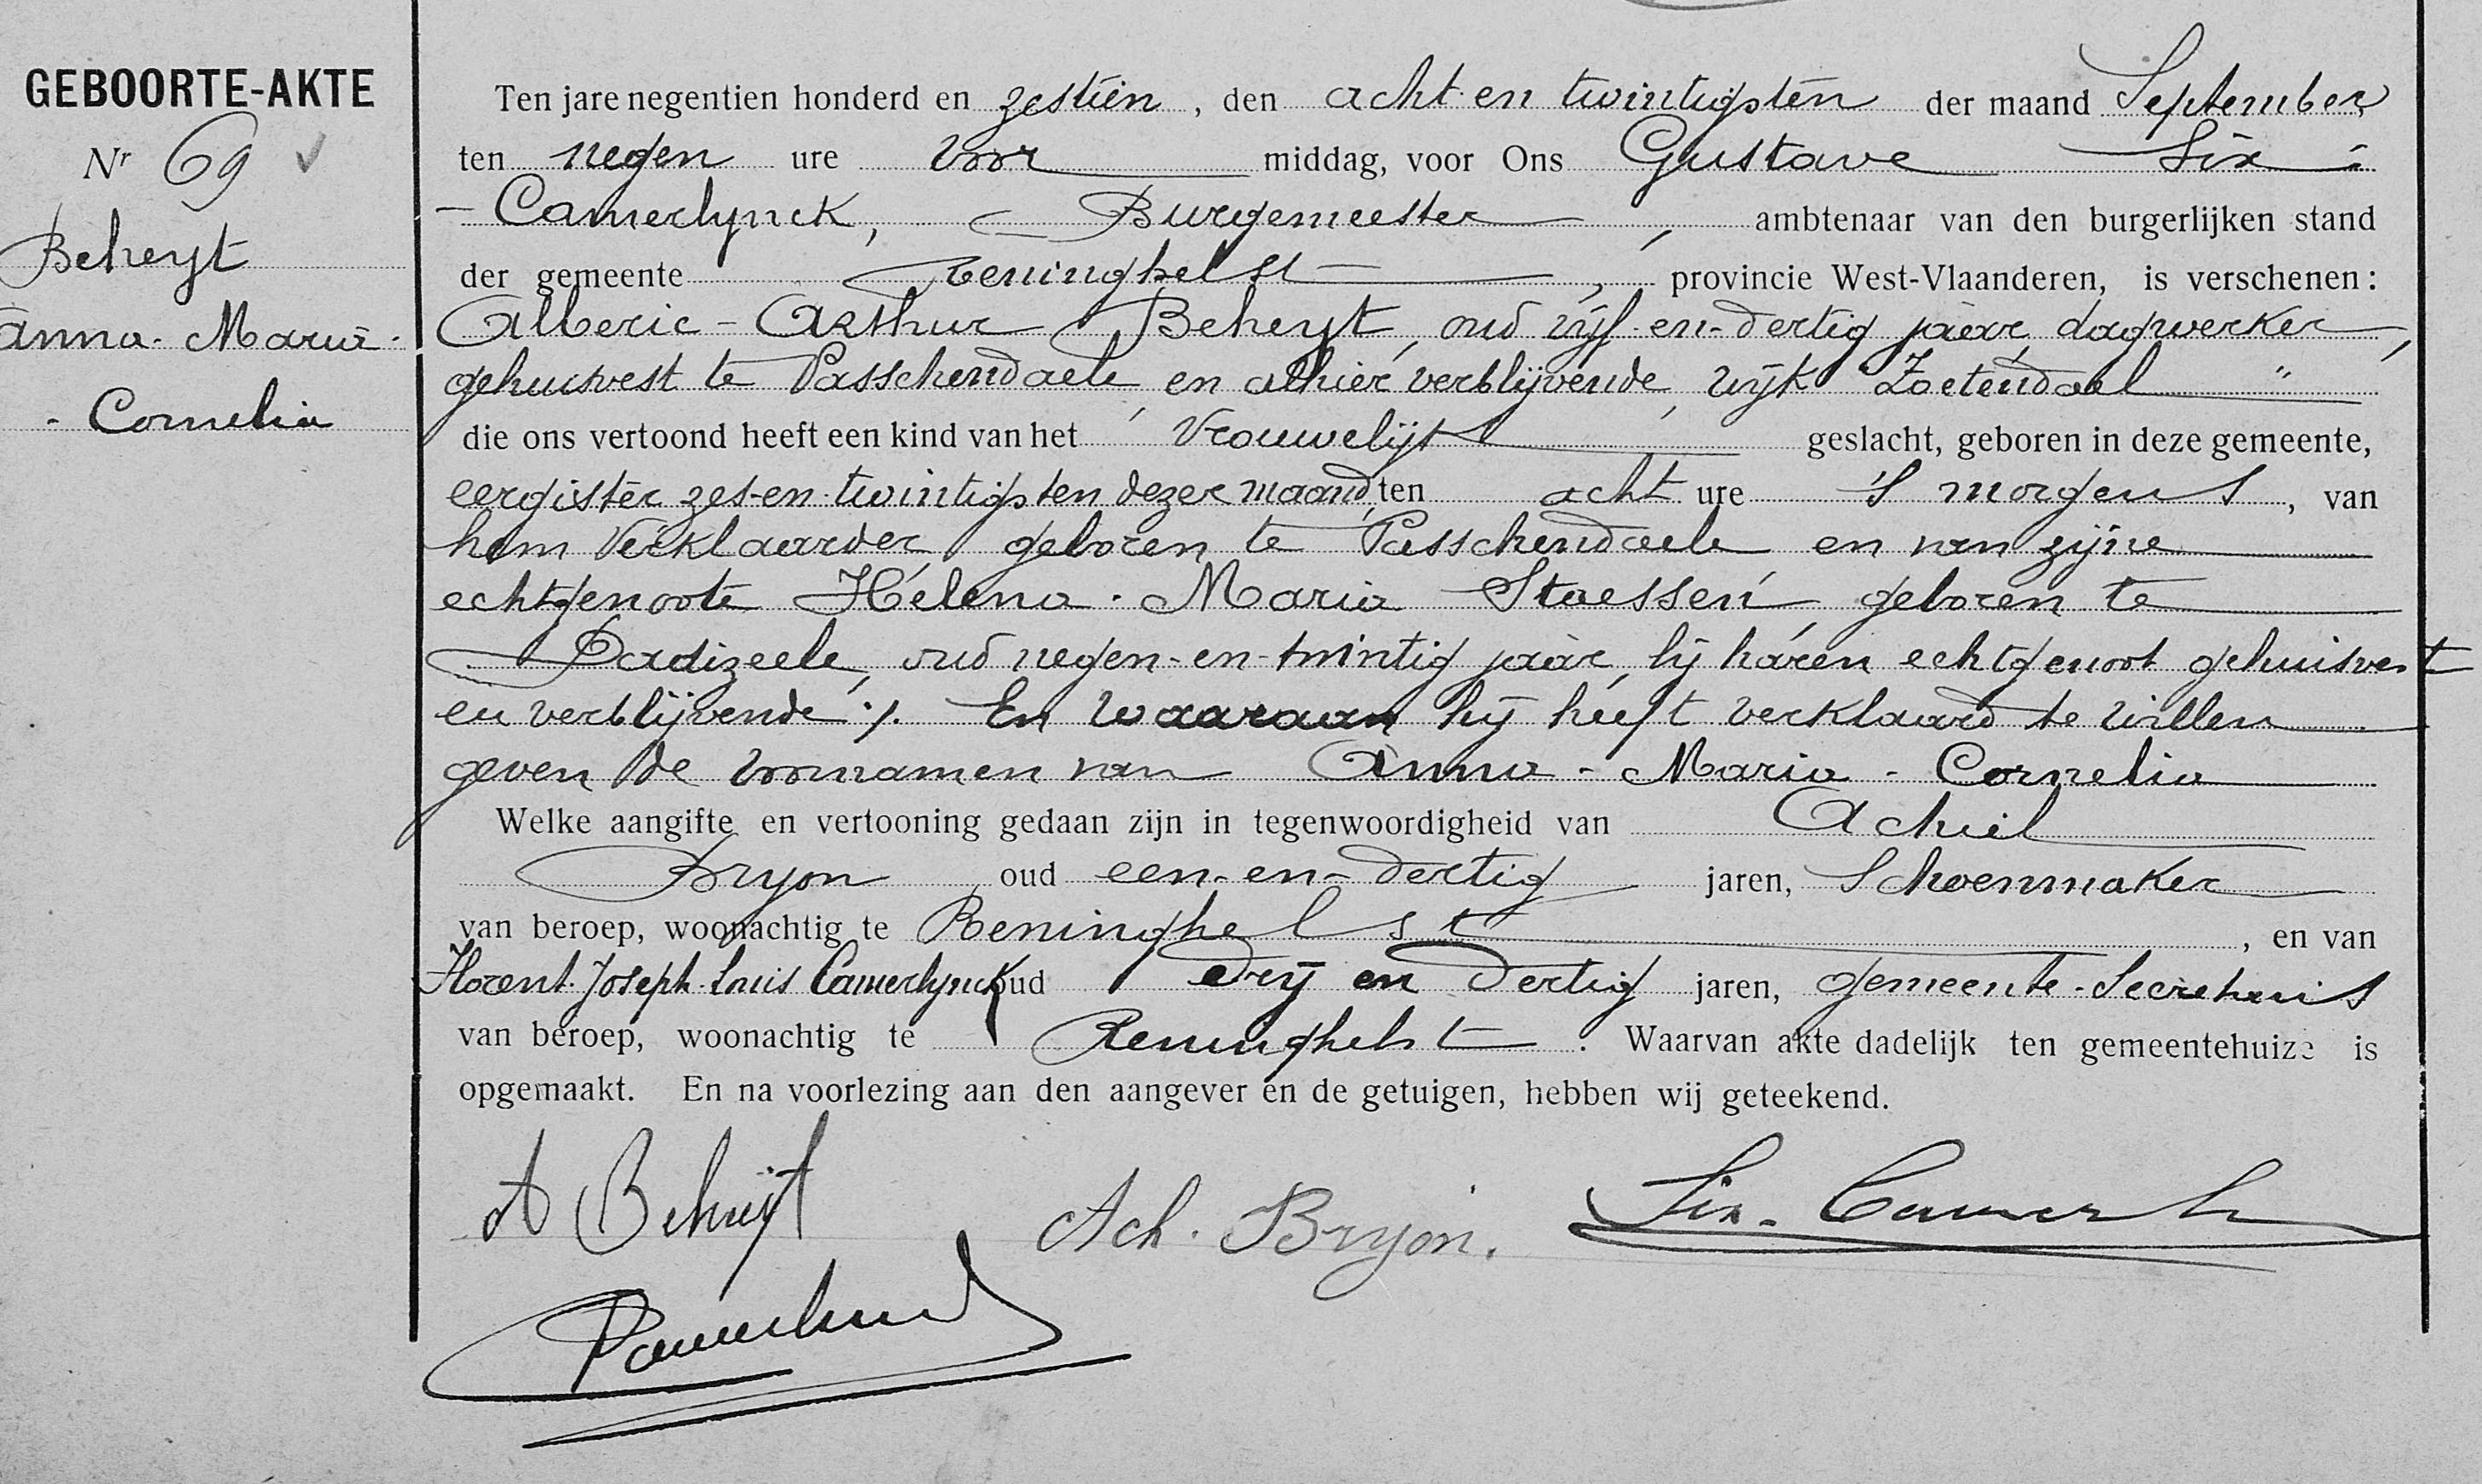 GEBOORTE-AKTE
Nr 69 ✓
Beheyt
Anna-Maria-
- Cornelia
Ten jare negentien honderd en zestien, den acht en twintigsten der maand September
ten negen ure voor middag, voor Ons Gustave Six -
- Camerlynck, Burgemeester, ambtenaar van den burgerlijken stand
der gemeente Reninghelst, provincie West-Vlaanderen, is verschenen:
Alberic-Arthur Beheyt, oud vijf-en-dertig jaar, dagwerker,
gehuisvest te Passchendaele en alhier verblijvende, wijk Zoetendaal "
die ons vertoond heeft een kind van het Vrouwelijk geslacht, geboren in deze gemeente,
eergister zes-en-twintigsten dezer maand, ten acht ure 's morgens, van
hem Verklaarder, geboren te Passchendaele en van zijne
echtgenoote Hélena-Maria Staessen, geboren te
Dadizeele, oud negen-en-twintig jaar, bij haren echtgenoot gehuisvest
en verblijvende ./. En waaraan hij heeft verklaard te willen
geven de voornamen van Anna-Maria-Cornelia
Welke aangifte en vertooning gedaan zijn in tegenwoordigheid van Achiel
Bryon, oud een-en-dertig jaren, Schoenmaker
van beroep, woonachtig te Reninghelst, en van
Florent-Joseph-Louis Camerlynck oud drij en dertig jaren, gemeente-Secretaris
van beroep, woonachtig te Reninghelst. Waarvan akte dadelijk ten gemeentehuize is
opgemaakt. En na voorlezing aan den aangever en de getuigen, hebben wij geteekend.
A Beheijt Ach. Bryon. Six-Camerl